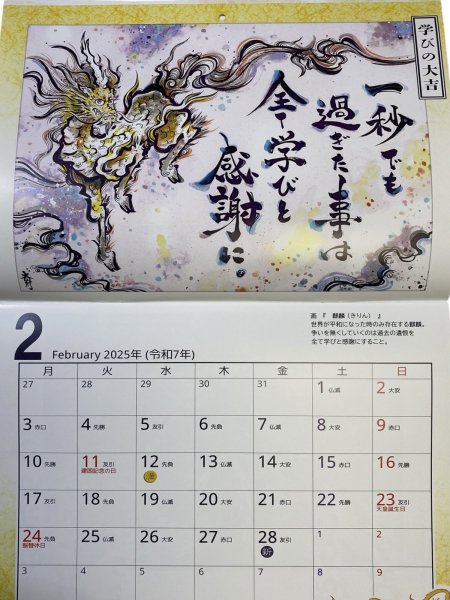 学びの大吉
一秒でも
過ぎた事は
全て学びと
感謝に。
画『 麒麟(きりん) 』
世界が平和になった時のみ存在する麒麟。
争いを無くしていくのは過去の遺恨を
全て学びと感謝にすること。
2
February 2025年 (令和7年)
月 火 水 木 金 土 日
27 28 29 30 31 1仏滅 2大安
3赤口 4先勝 5友引 6先負 7仏滅 8大安 9赤口
10先勝 11友引 12先負 13仏滅 14大安 15赤口 16先勝
建国記念の日 満
17友引 18先負 19仏滅 20大安 21赤口 22先勝 23友引
天皇誕生日
24先負 25仏滅 26大安 27赤口 28友引 1 2
振替休日 新
3 4 5 6 7 8 9